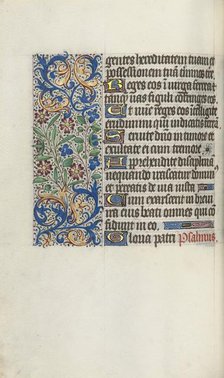 gentes hereditatem tuam et
possessionem tuā trinos ter
Reges eos in virga ferrea
tanq̄ vas figuli confringes eos
Et nūc reges
erudimini qui iudicatis terrā
Seruite dño in timore et
exultate ei cum tremore
Apprehendite disciplinā
nequando irascatur domin
et pereatis de via iusta
Cum exarserit in breui
ira eius beati omnes qui cō
fidunt in eo
Gloria patri Psalmus